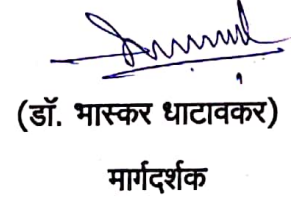 (डॉ. भास्कर धाटावकर)
मार्गदर्शक